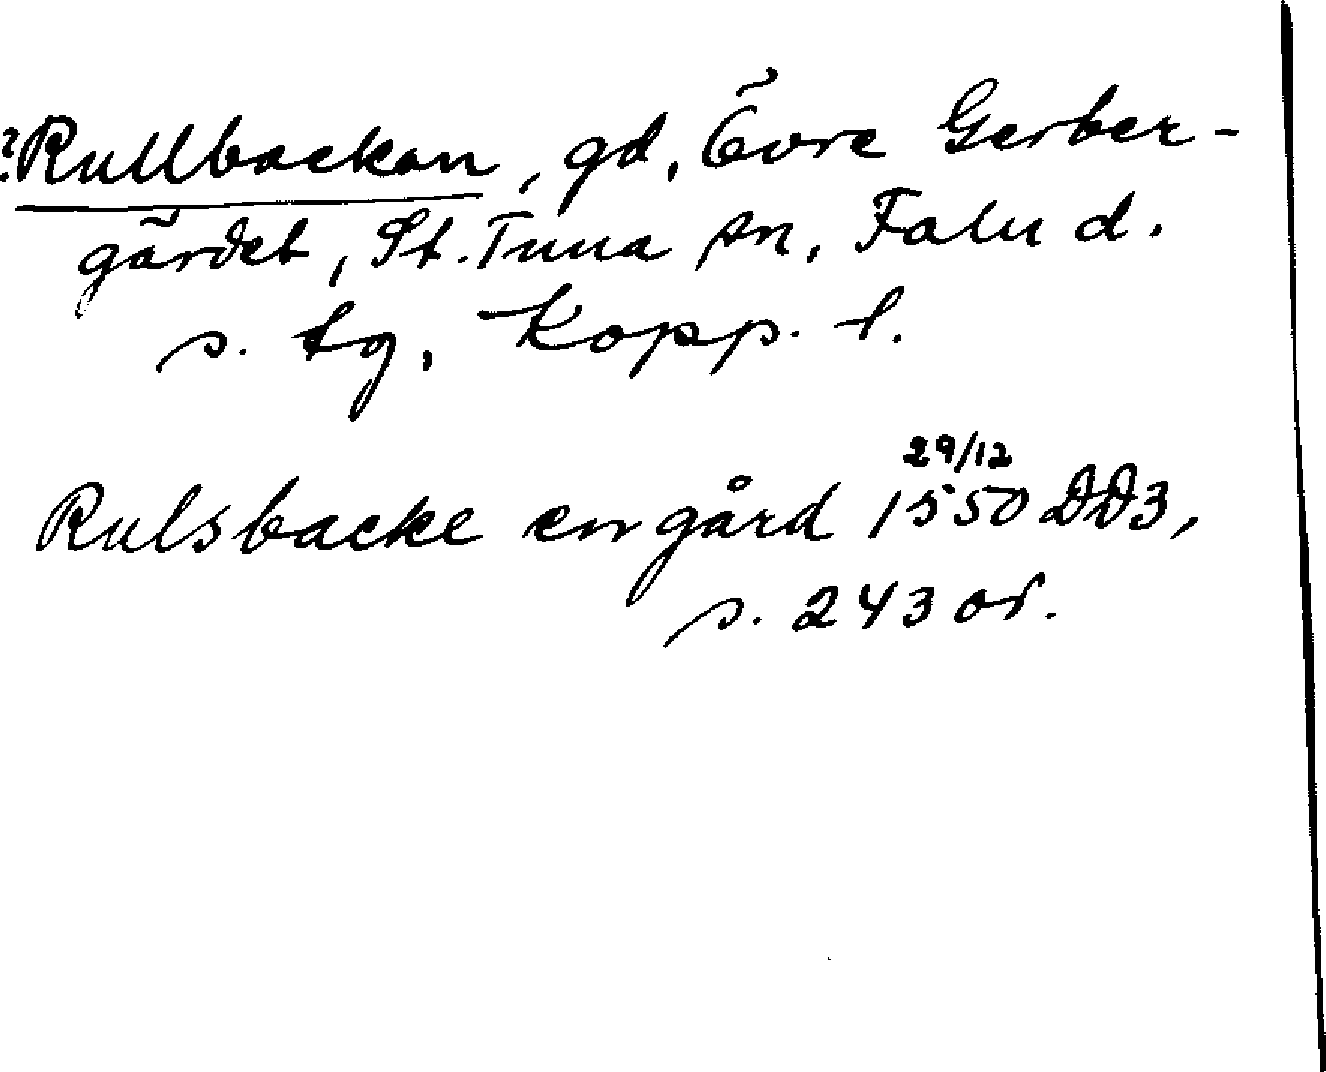 ?Rullbackan, gd, Övre Gerber-
gärdet, St. Tuna sn, Falu d.
s. tg, Kopp. l.
29/12
Rulsbacke en gård 1550 DD3,
s. 243 or.